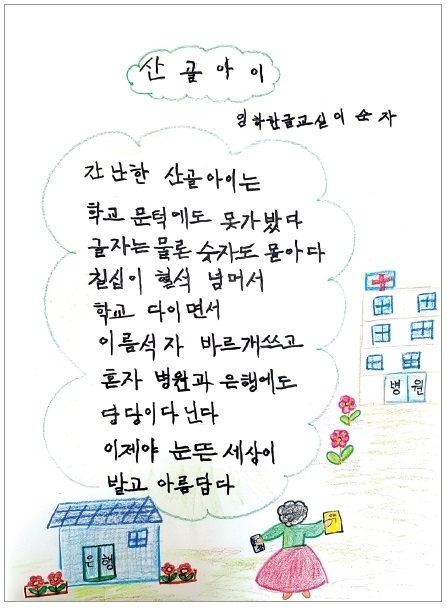 산골아이
임학한글교실 이순자
가난한 산골아이는
학교 문턱에도 못가봤다
글자는물론 숫자도 몰아다
칠십이 훨석 넘머서
학교 다이면서
이름석자 바르개쓰고
혼자 병원과 은행에도
당당이다닌다
이제야 눈뜬 세상이
발고 아름답다
병원
은행